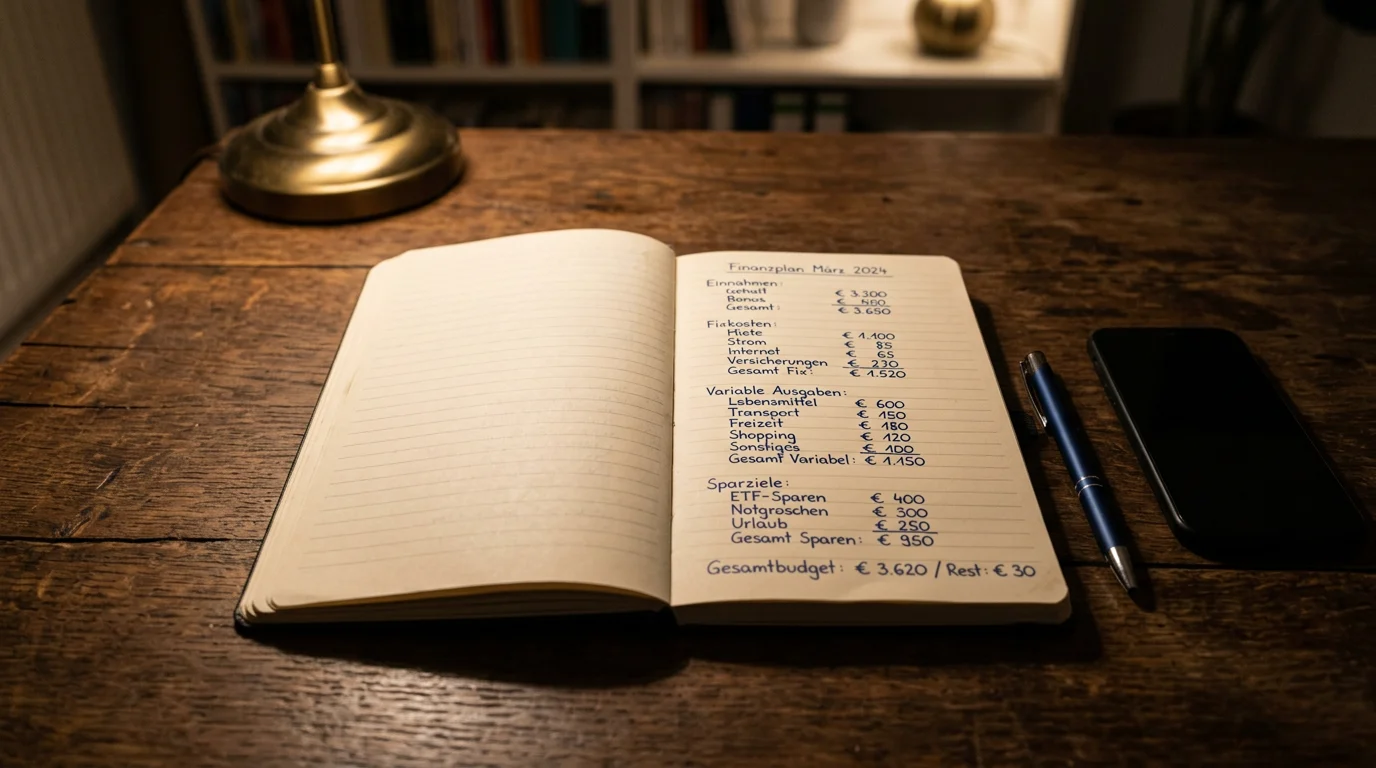 Finanzplan März 2024
Einnahmen:
Gehalt € 3.300
Bonus €
Gesamt: € 3.650
Fixkosten:
Miete € 1.100
Strom € 85
Internet € 65
Versicherungen € 230
Gesamt Fix: € 1.520
Variable Ausgaben:
Lebensmittel € 600
Transport € 150
Freizeit € 180
Shopping € 120
Sonstiges € 100
Gesamt Variabel: € 1.150
Sparziele:
ETF-Sparen € 400
Notgroschen € 300
Urlaub € 250
Gesamt Sparen: € 950
Gesamtbudget: € 3.620 / Rest: € 30